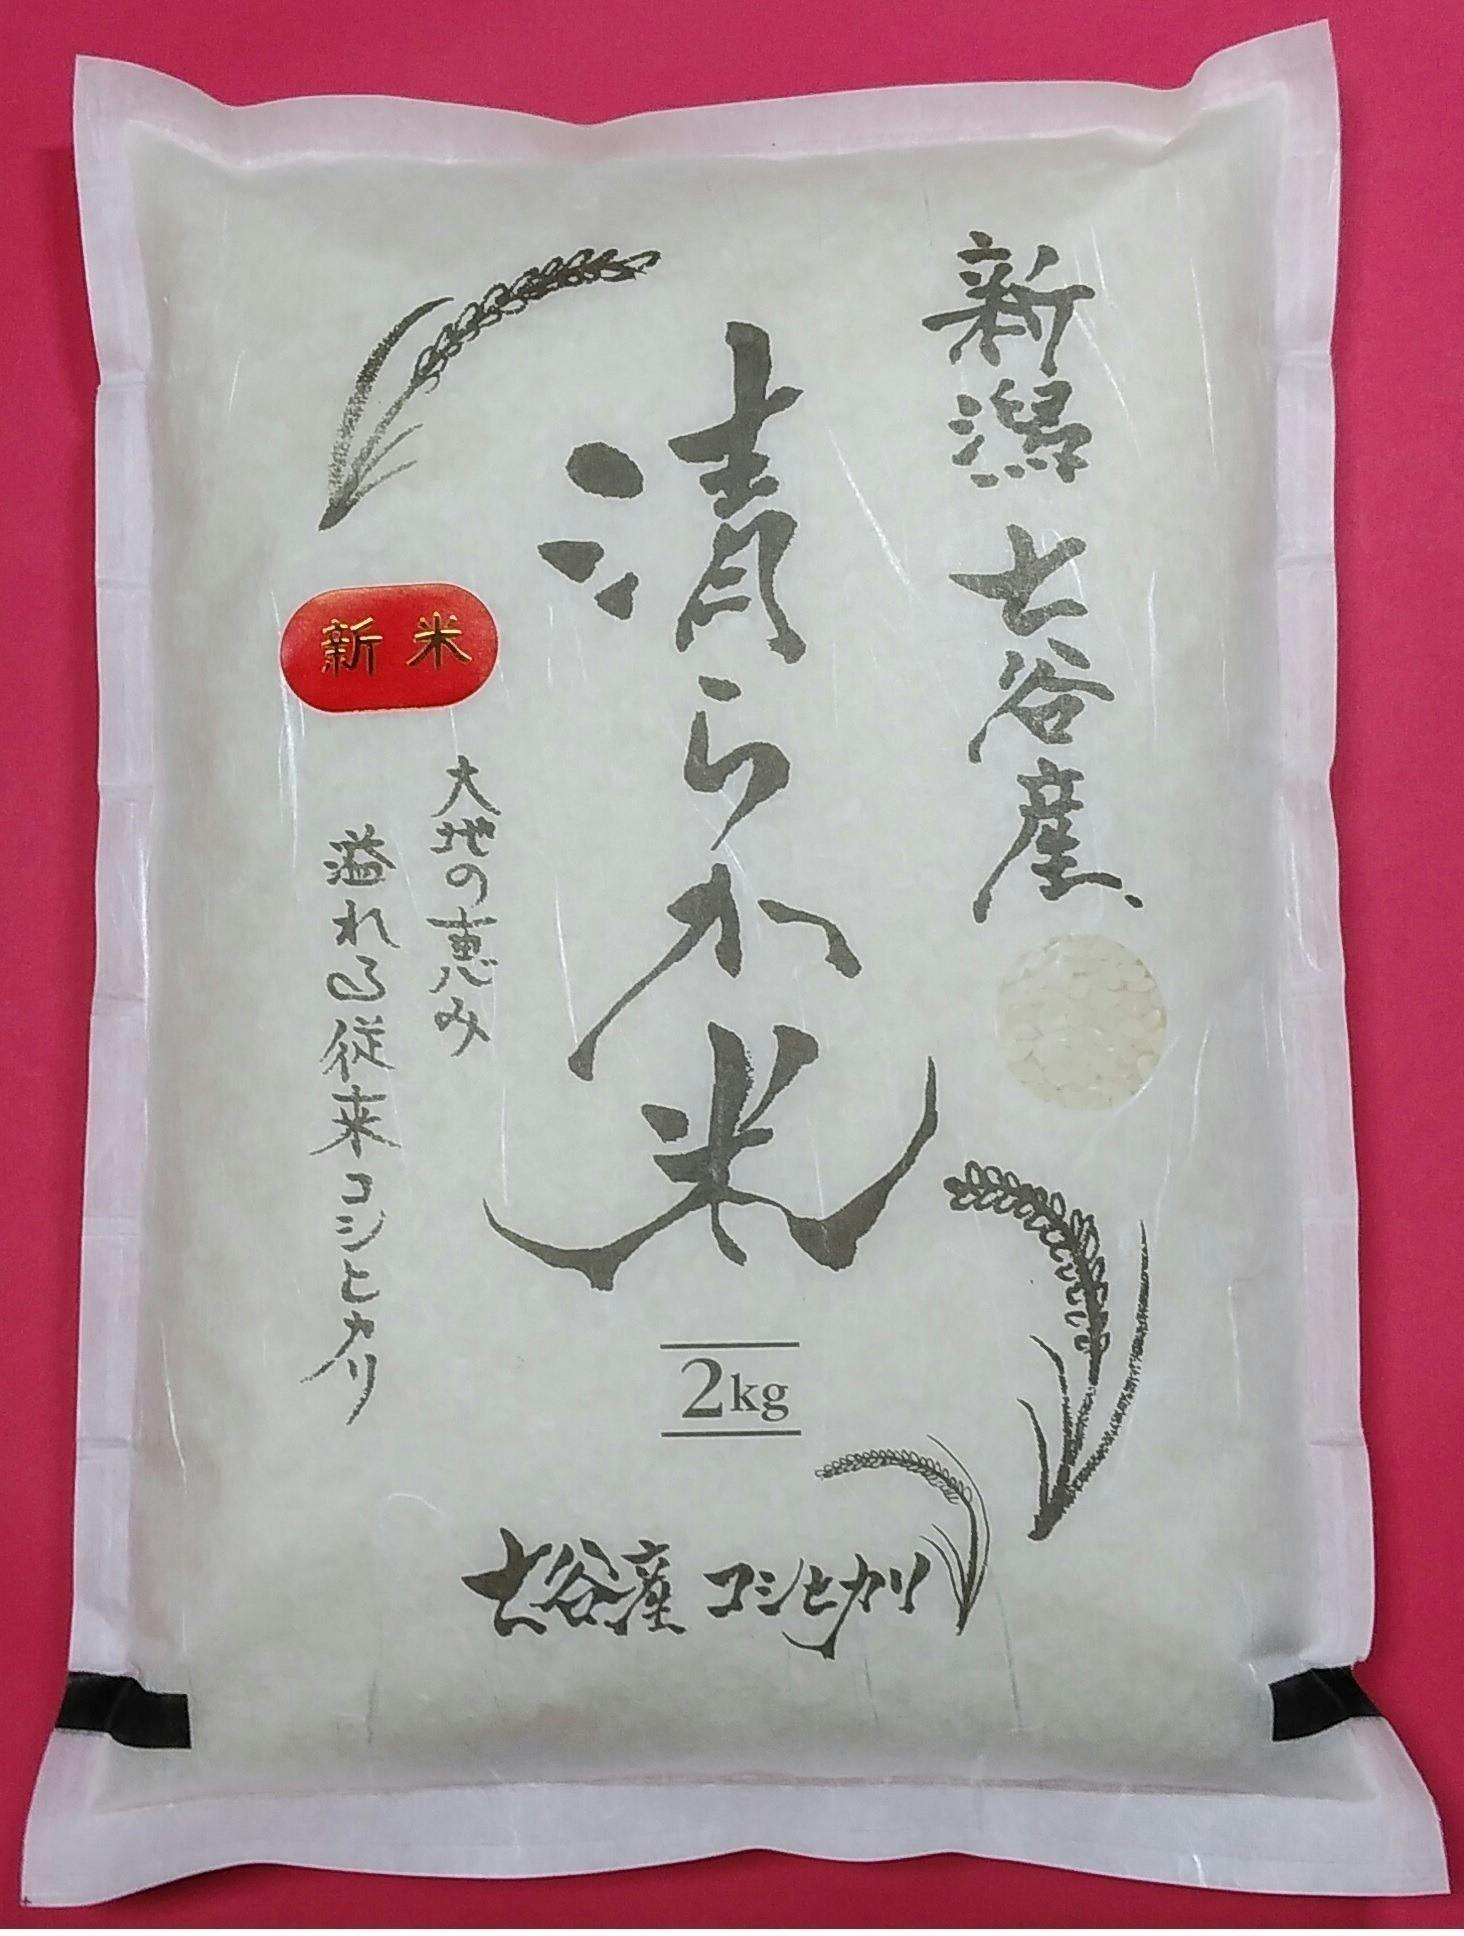 新潟七谷産
清らか米
新米
大地の恵み
溢れる従来コシヒカリ
2kg
七谷産 コシヒカリ